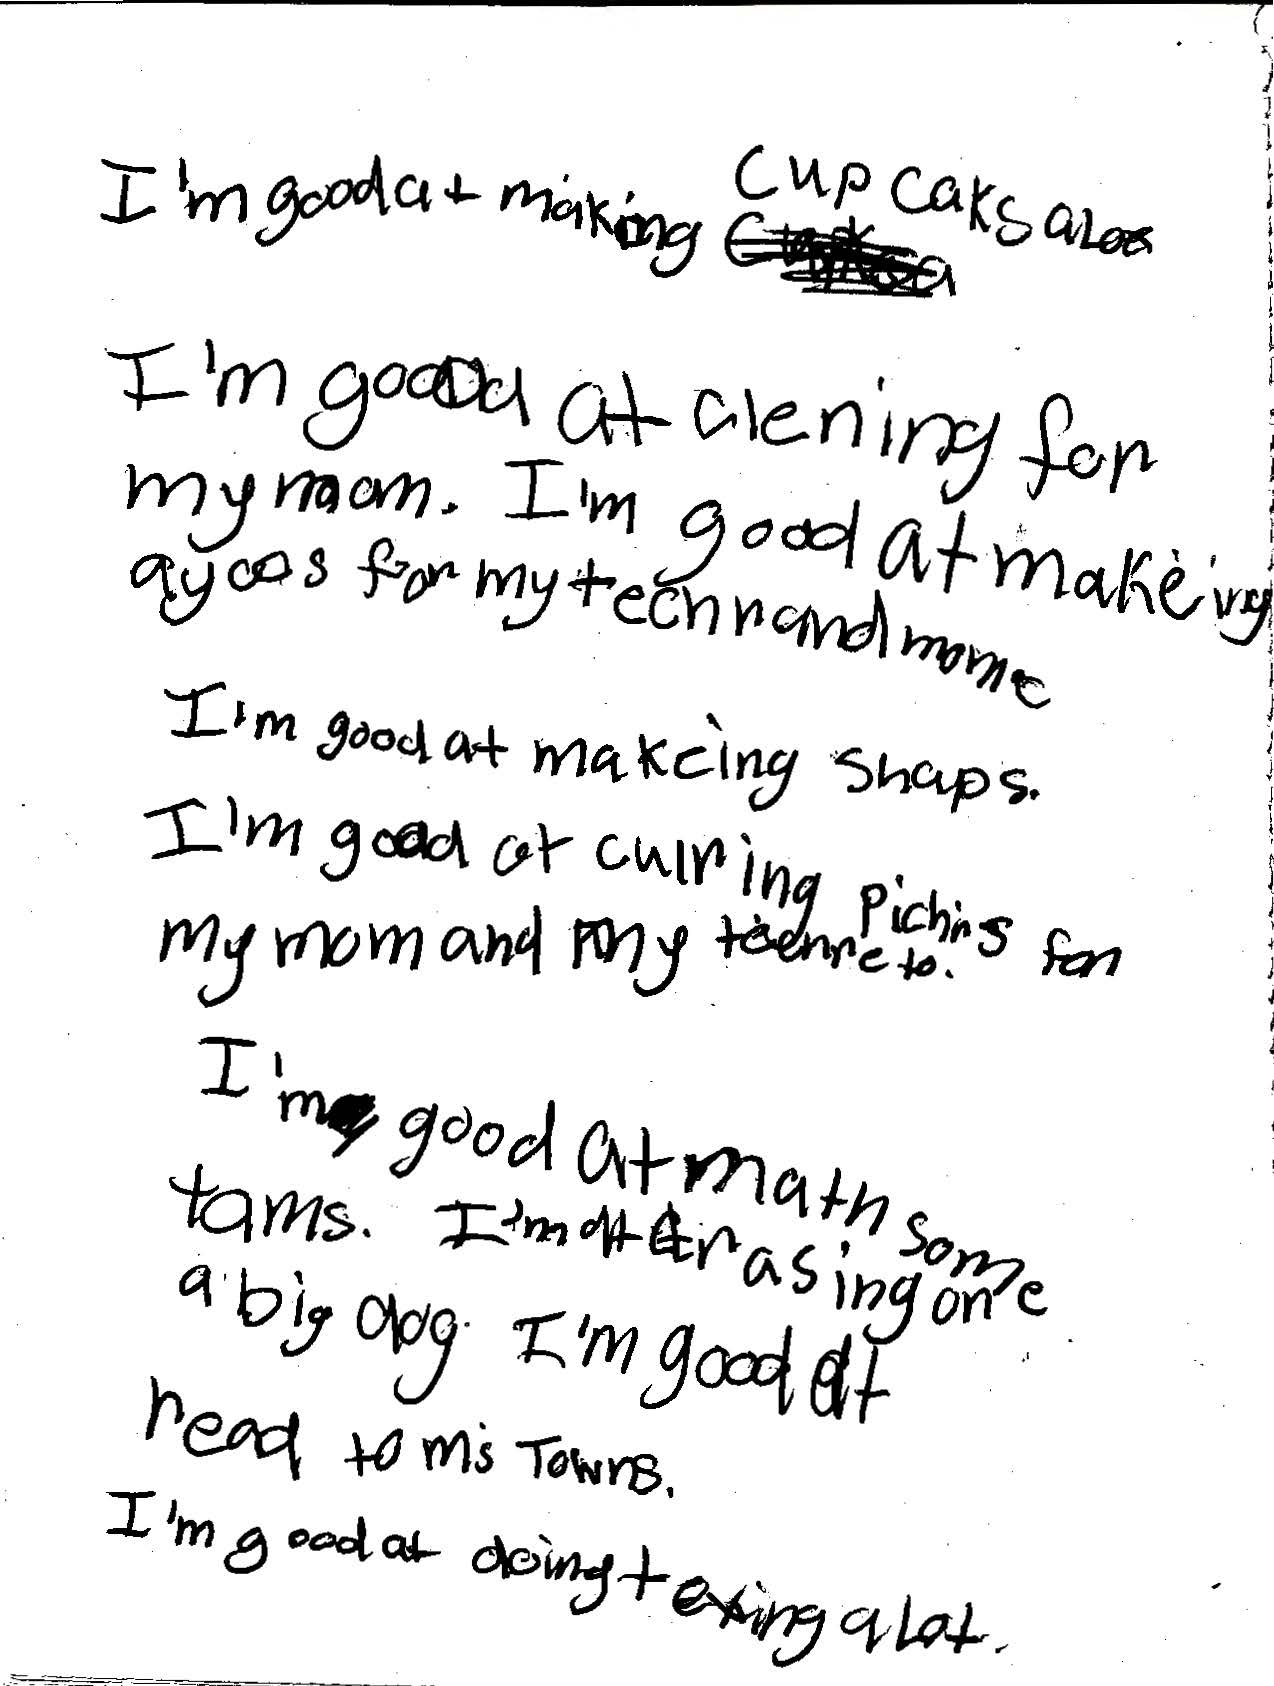 I'm good at making cupcaks
I'm good at clening for
my mom. I'm good at makeing
for my techr and mome
I'm good at makeing shaps.
I'm good at culring pichrs for
my mom and my to.
I'm good at math some
tams. I'm at erasing on
a big dog. I'm good at
read to m's Towns.
I'm good at doing texing a lot.